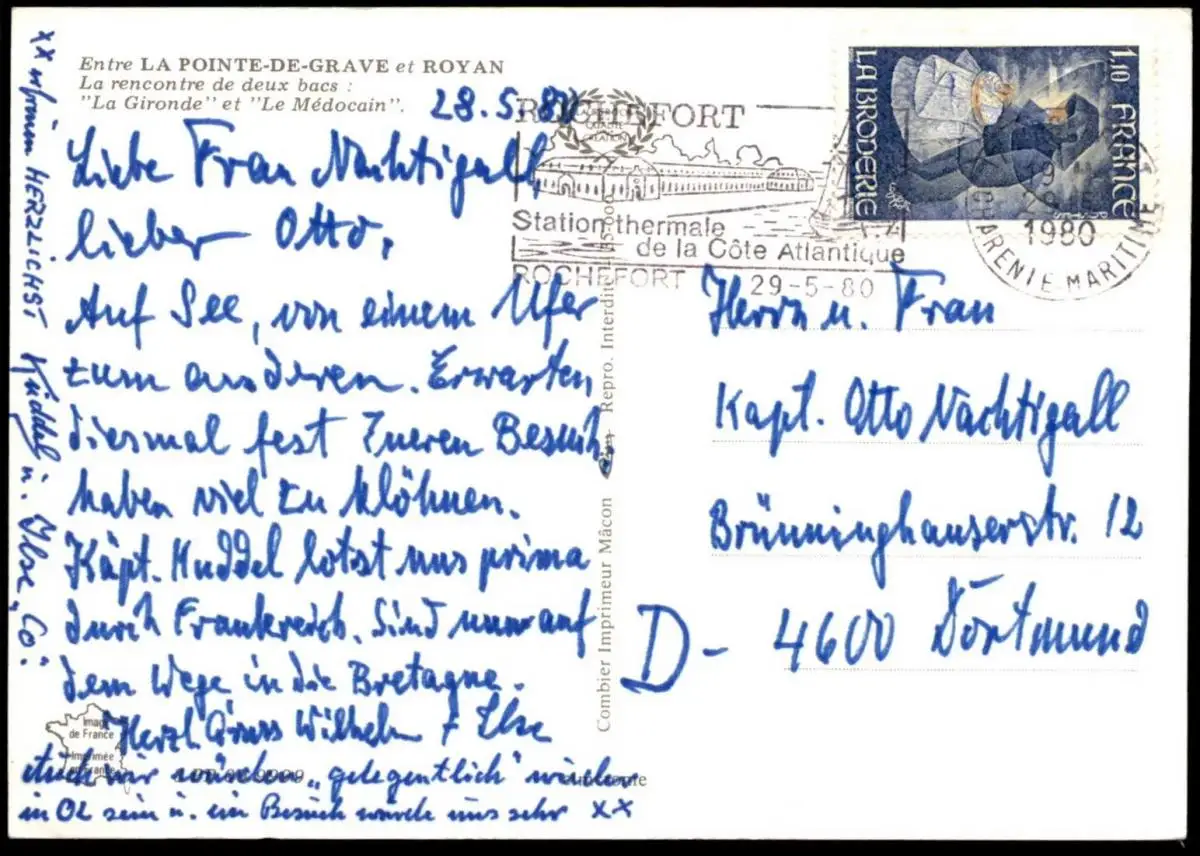 Entre LA POINTE-DE-GRAVE et ROYAN
La rencontre de deux bacs :
"La Gironde" et "Le Médocain".
28.5.80
Liebe Frau Nachtigall,
lieber Otto,
Auf See, von einem Ufer
zum anderen. Erwarten
diesmal fest Eueren Besuch,
haben viel zu klöhnen.
Käpt. Kuddel lotst uns prima
durch Frankreich. Sind nun auf
dem Wege in die Bretagne.
Herzl. Gruss Wilhelm + Ilse
Auch wir würden „gelegentlich" wieder
in OL sein u. ein Besuch würde uns sehr xx
xx erfreuen HERZLICHST Kuddel u. Ilse, Co.
Image
de France
Imprimée
en France
Combier Imprimeur Mâcon
Repro. Interdite
ROCHEFORT
QUALITÉ
CRÉATION
Station thermale
de la Côte Atlantique
ROCHEFORT 29-5-80
1980
CHARENTE-MARITIME
1,10 FRANCE
LA BRODERIE
Herrn u. Frau
Kapt. Otto Nachtigall
Brünninghauserstr. 12
D- 4600 Dortmund